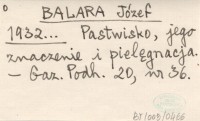 o
BALARA Józef
1932... Pastwisko, jego
znaczenie i pielęgnacja.
– Gaz. Podh. 20, nr 36.
BJ/009/0466